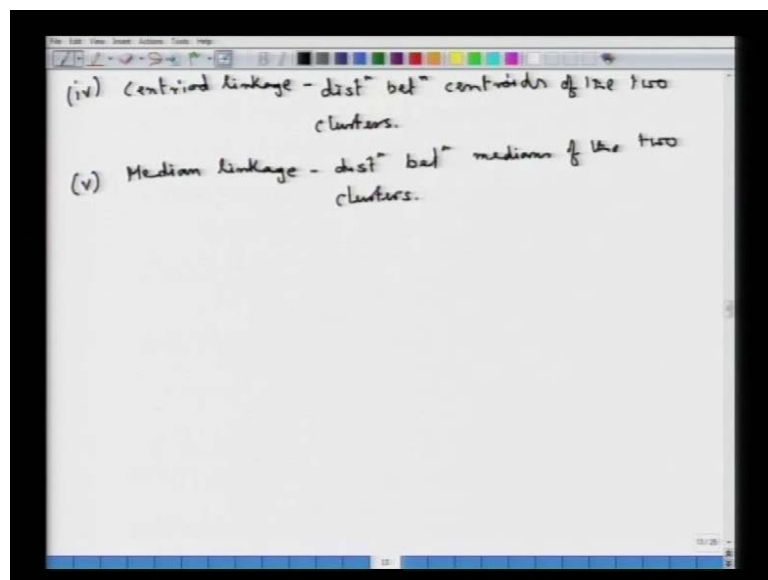 File Edit View Insert Actions Tools Help
(iv) Centriod linkage - distⁿ betⁿ centroids of the two
clusters.
(v) Median linkage - distⁿ betⁿ medians of the two
clusters.
13